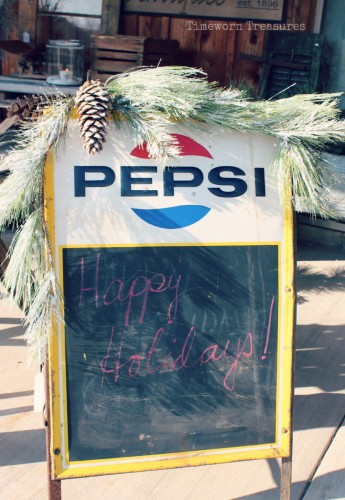 Timeworn Treasures
est. 1896
PEPSI
Happy
Holidays!